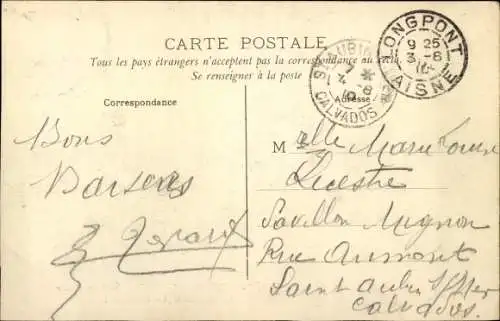 CARTE POSTALE
Tous les pays étrangers n'acceptent pas la correspondance au
Se renseigner à la poste
LONGPONT
9 25
3-8
AISNE
ST AUBIN
CALVADOS
Correspondance
Adresse
Bons
Baisers
Melle Marie Louise
Pavillon Mignon
Rue Aumont
Saint Aubin s/Mer
Calvados.